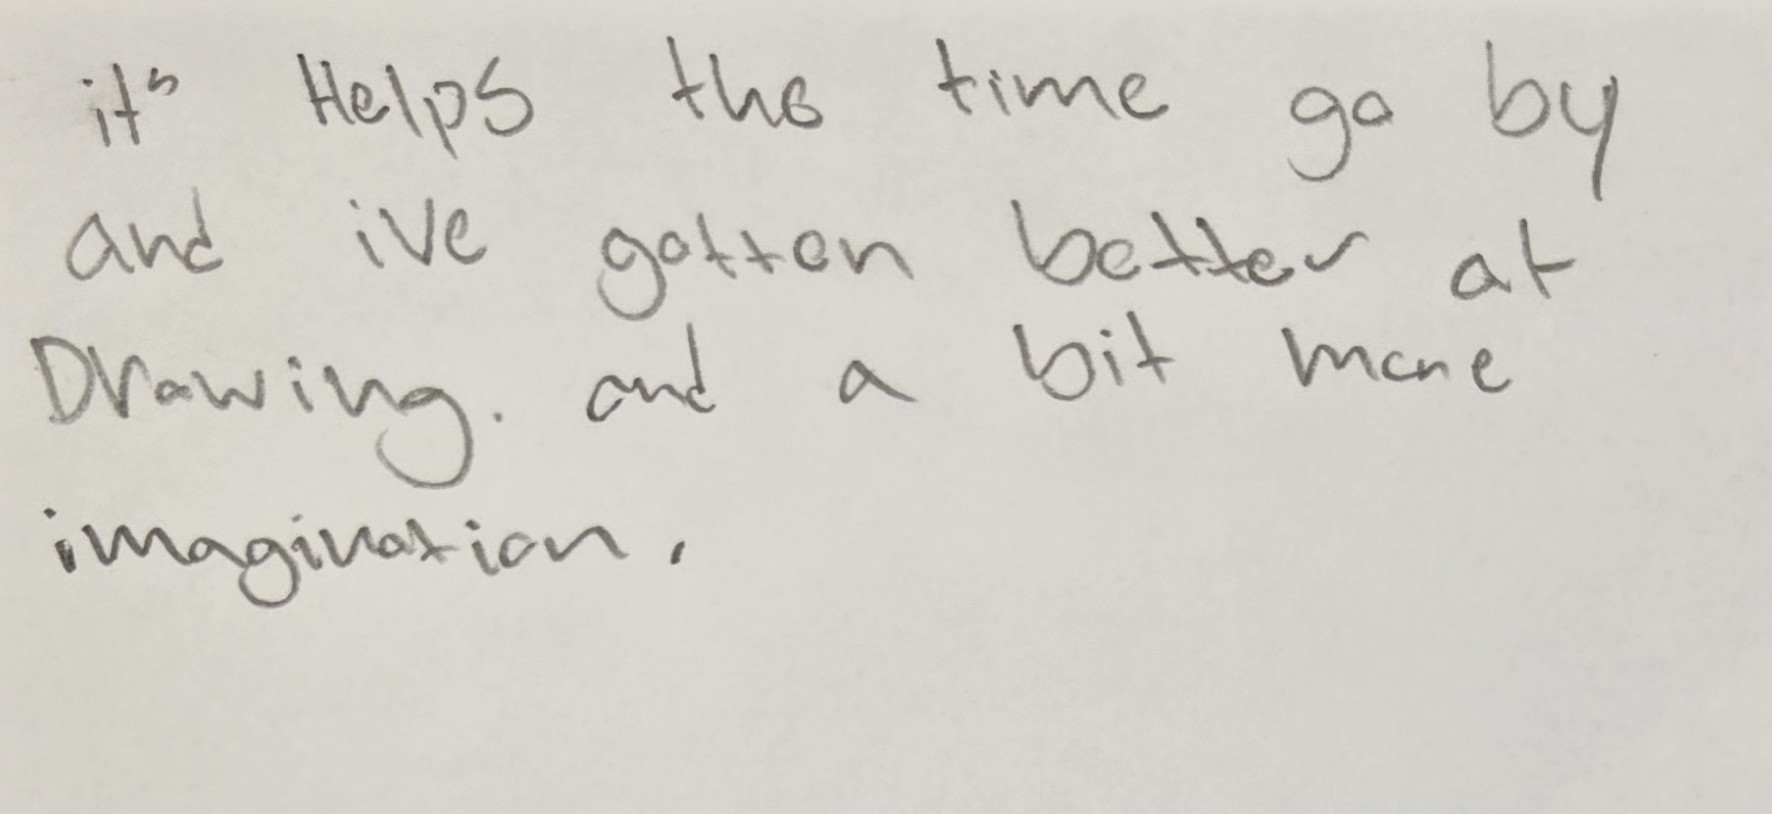 it's Helps the time go by
and ive gotten better at
Drawing. and a bit more
imagination.